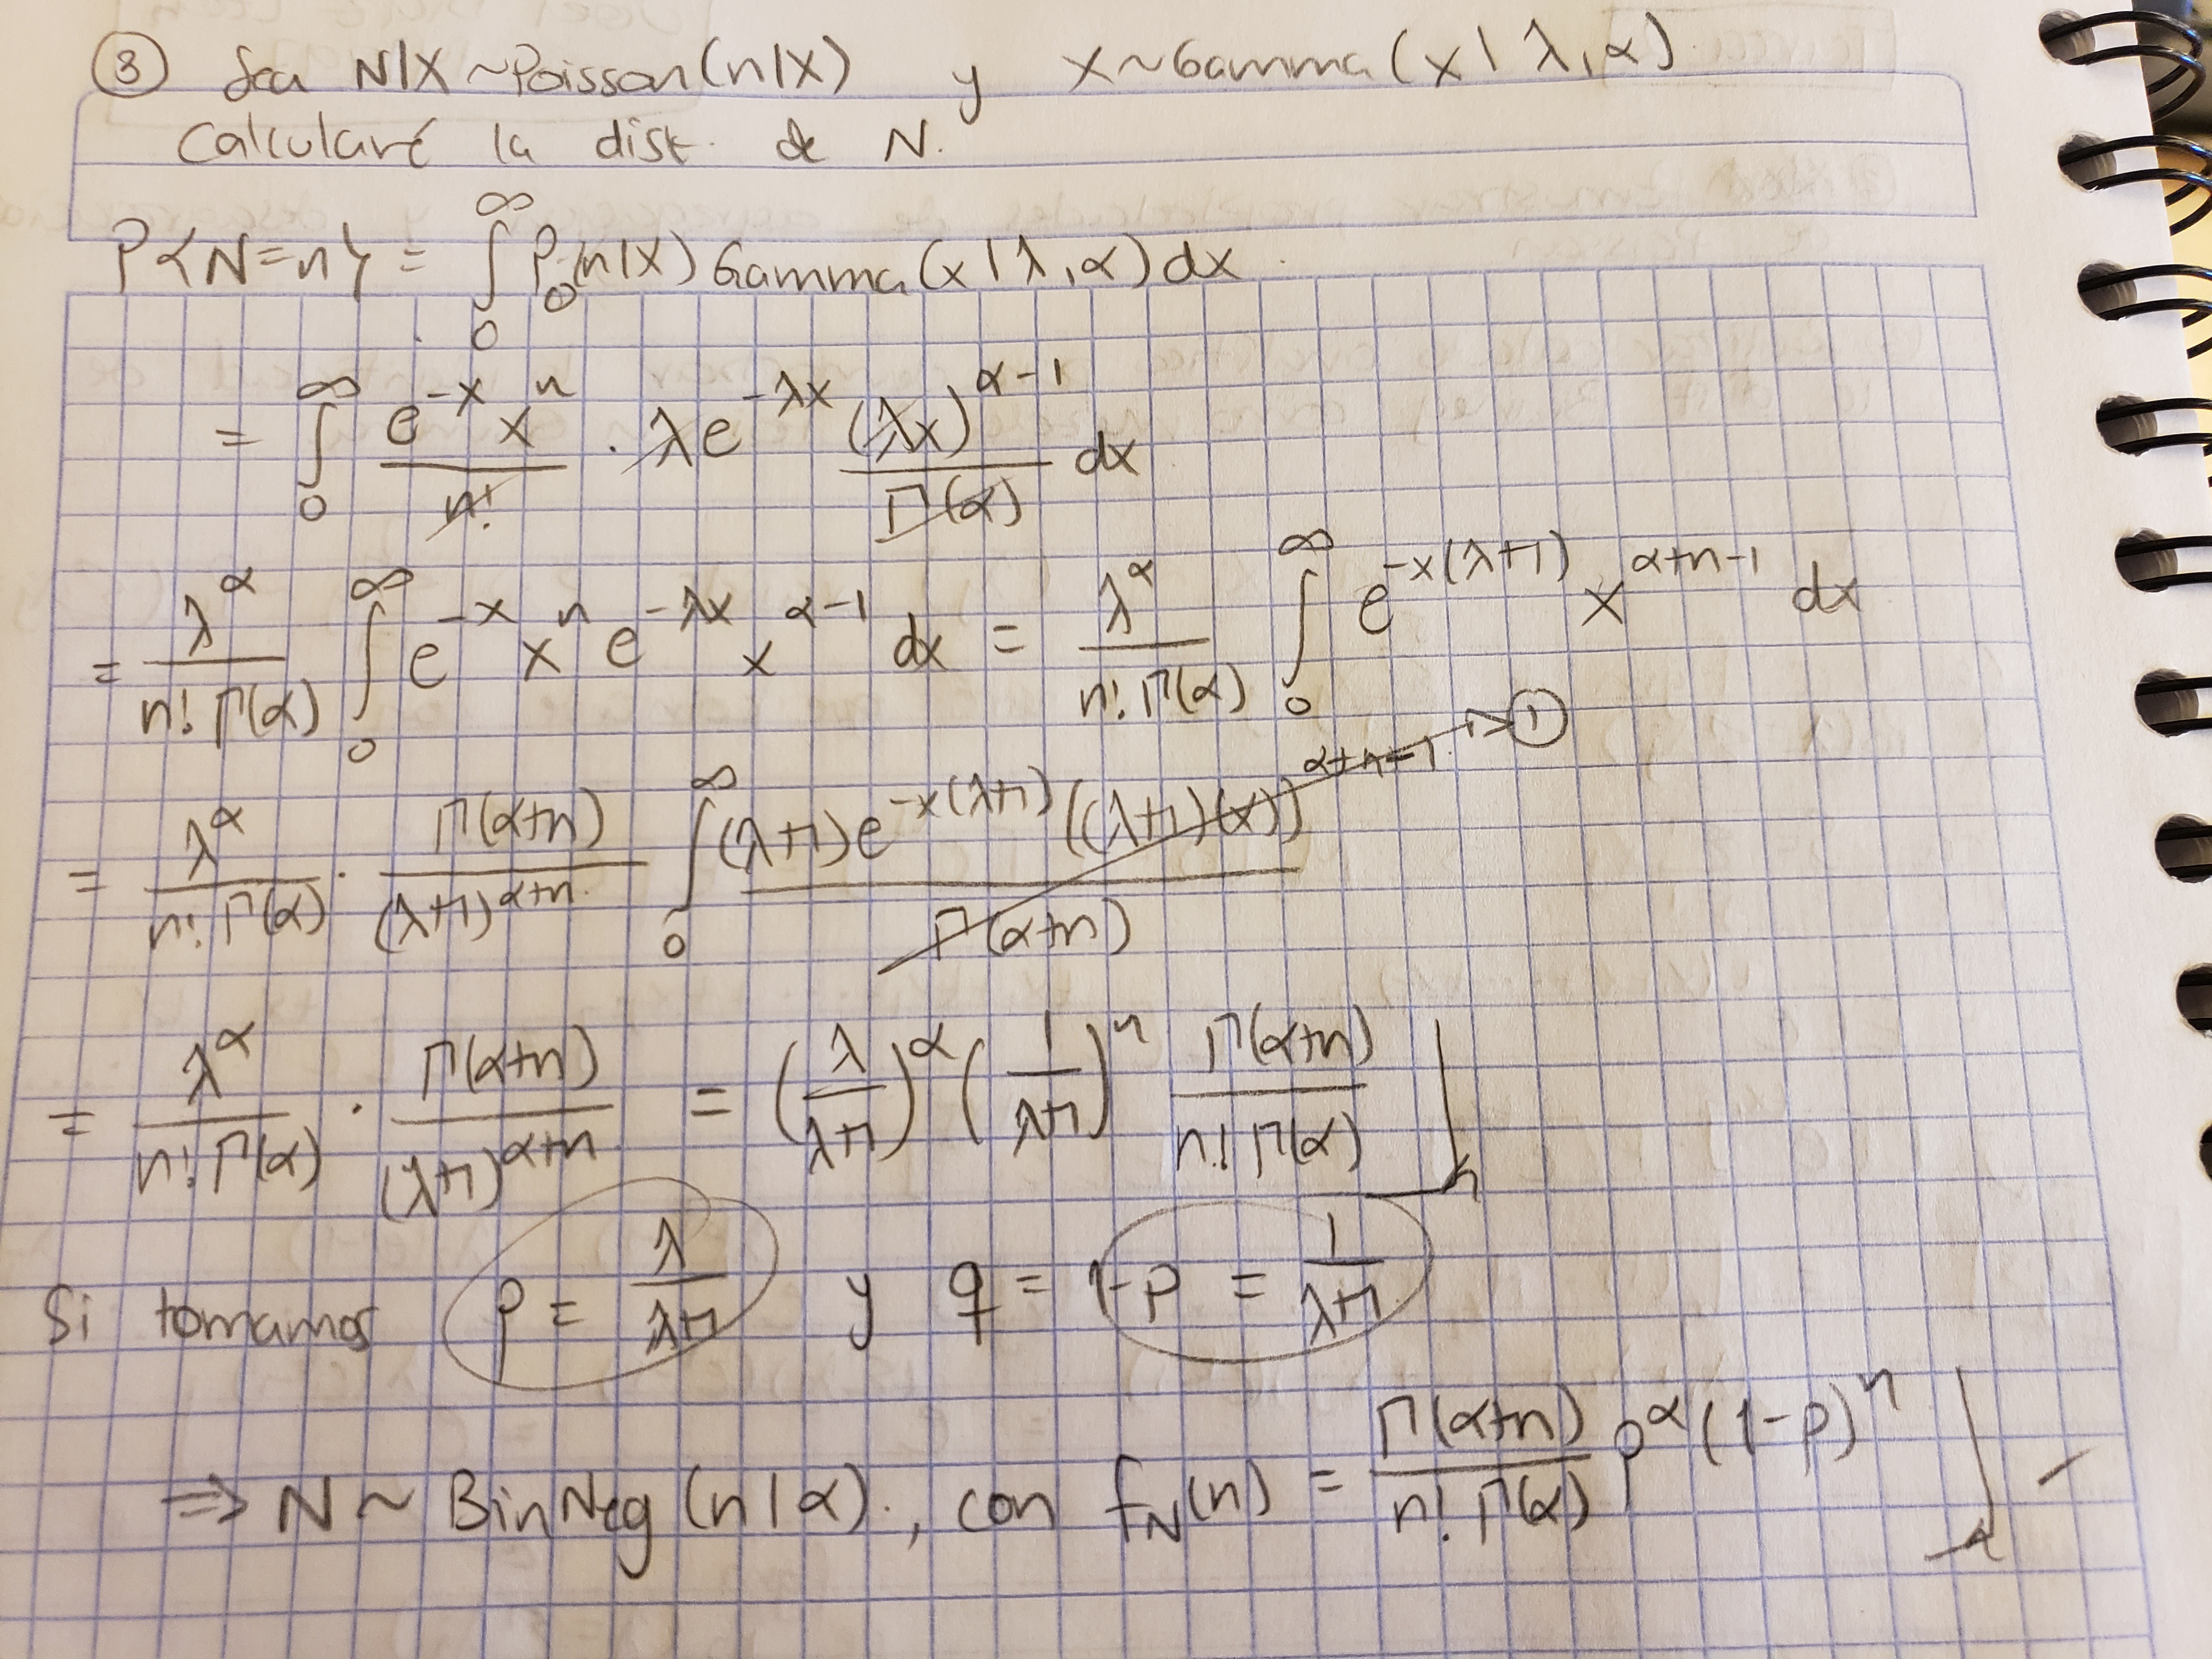 ③ Sea N|X ~Poisson(n|X) y X~Gamma(x|λ,α)
Calcularé la dist. de N.
P{N=n} = ∫₀^∞ Po(n|X) Gamma(x|λ,α)dx.
= ∫₀^∞ e^{-x} x^n / n! · λe^{-λx} (λx)^{α-1} / Γ(α) dx
= λ^α / n! Γ(α) ∫₀^∞ e^{-x} x^n e^{-λx} x^{α-1} dx = λ^α / n! Γ(α) ∫₀^∞ e^{-x(λ+1)} x^{α+n-1} dx
= λ^α / n! Γ(α) · Γ(α+n) / (λ+1)^{α+n} ∫₀^∞ (λ+1)e^{-x(λ+1)} ((λ+1)(x))^{α+n-1} / Γ(α+n) → ①
= λ^α / n! Γ(α) · Γ(α+n) / (λ+1)^{α+n} = (λ / λ+1)^α (1 / λ+1)^n Γ(α+n) / n! Γ(α)
Si tomamos p = λ / λ+1 y q = 1-p = 1 / λ+1
⇒ N ~ BinNeg(n|α)., con f_N(n) = Γ(α+n) / n! Γ(α) p^α (1-p)^n